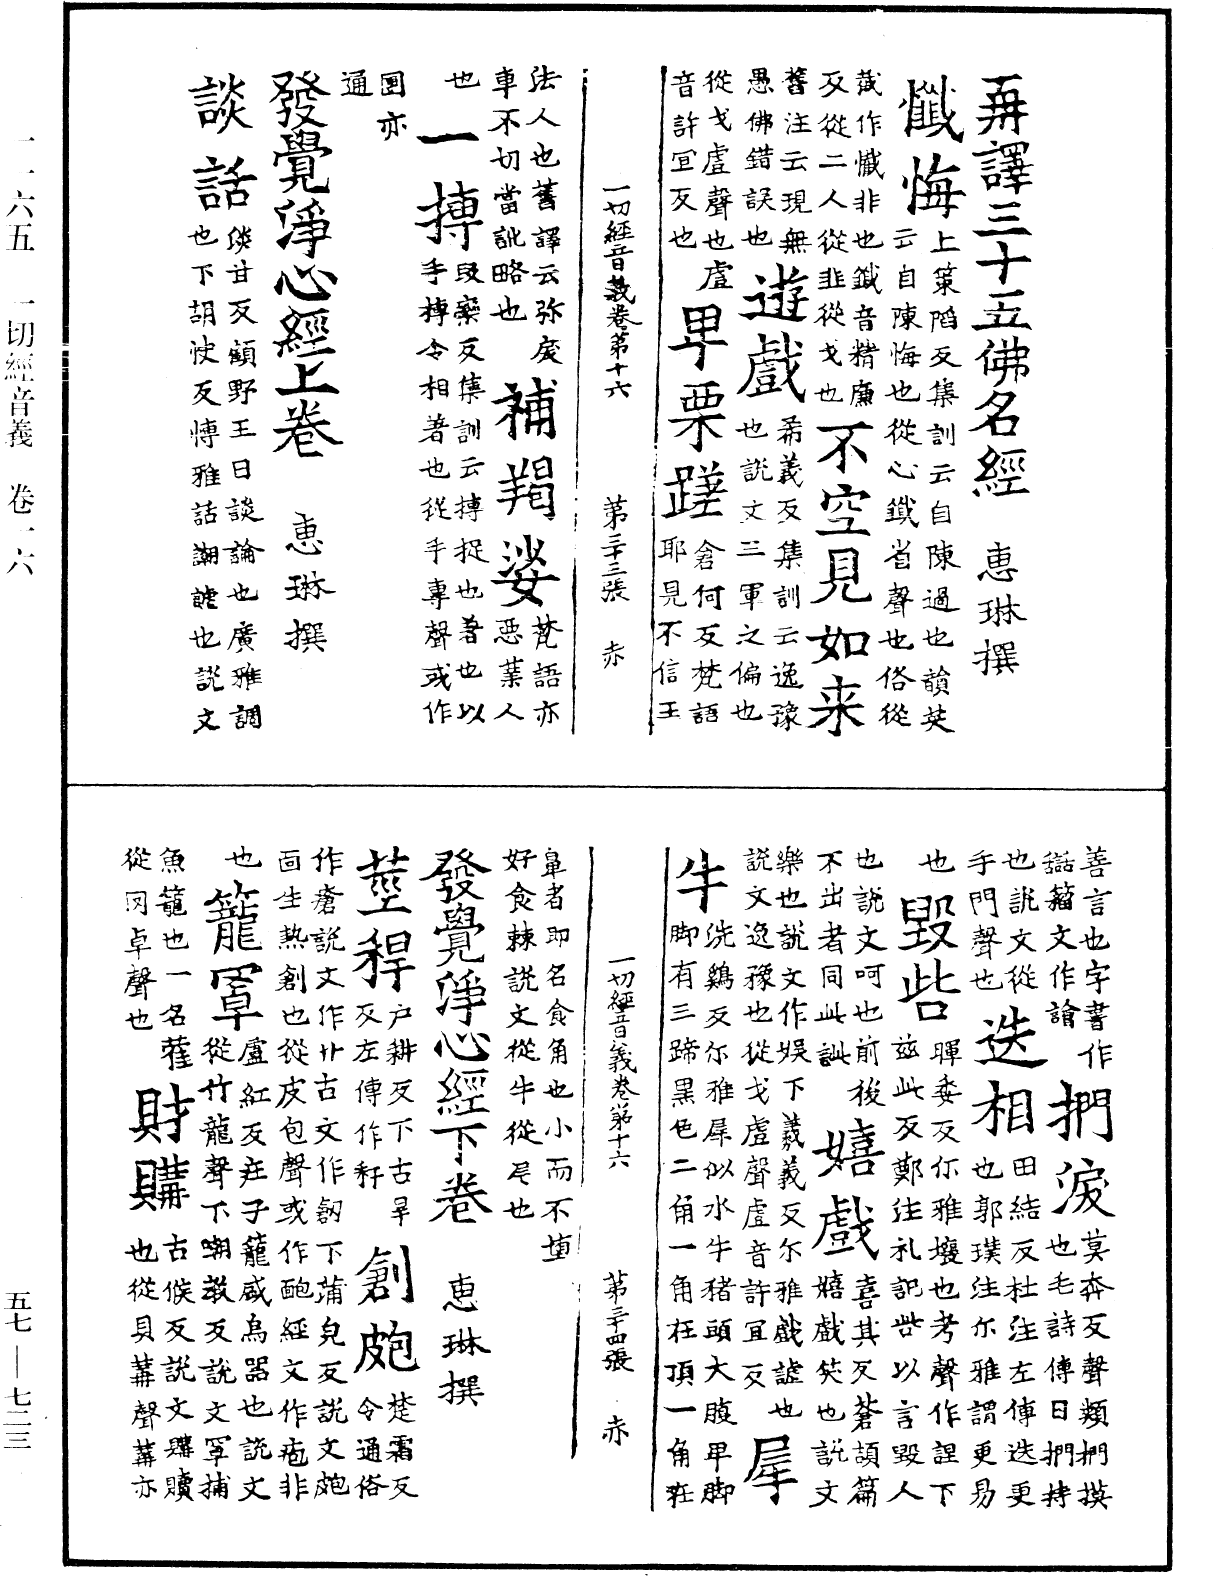 再譯三十五佛名經　惠琳撰
懺悔　上策陷反集訓云自陳過也韻英
云自陳悔也從心韱省聲也俗從
韯作懴非也韱音精廉
反從二人從韭從戈也　不空見如来
舊注云現無
愚佛錯誤也　遊戲　希義反集訓云逸豫
也說文三軍之偏也
從戈䖒聲也䖒
音許宜反也　畢栗蹉　倉何反梵語
耶見不信王
一切經音義卷第十六　第三十三張　赤
法人也舊譯云弥戾
車不切當訛略也　補羯娑　梵語亦
惡業人
也　一摶　段欒反集訓云摶捉也著也以
手摶令相著也從手專聲或作
團亦
通
發覺淨心經上卷　惠琳撰
談話　淡甘反顧野王曰談論也廣雅調
也下胡快反博雅話謿謔也說文
善言也字書作
䛡籕文作譮　捫淚　莫奔反聲類捫摸
也毛詩傳曰捫持
也說文從
手門聲也　迭相　田結反杜注左傳迭更
也郭璞注尔雅謂更易
也　毀呰　暉委反尓雅壞也考聲作諻下
茲此反鄭注礼記呰以言毀人
也說文呵也前後
不出者同此訓　嬉戲　喜其反蒼頡篇
嬉戲笑也說文
樂也說文作娱下羲義反尔雅戲謔也
說文逸豫也從戈䖒聲䖒音許宜反　犀
牛　洗鷄反尔雅犀似水牛猪頭大腹甲脚
脚有三蹄黑色二角一角在頂一角在
一切經音義卷第十六　第三十四張　赤
鼻者即名食角也小而不墮
好食棘說文從牛從尾也
發覺淨心經下卷　惠琳撰
莖稈　户耕反下古旱
反左傳作秆　創皰　楚霜反
令通俗
作瘡說文作办古文作刱下蒲皃反說文皰
面生熱創也從皮包聲或作靤經文作疱非
也　籠罩　盧紅反莊子籠盛鳥器也說文
從竹龍聲下嘲教反說文罩捕
魚籠也一名藋
從罔卓聲也　財購　古候反說文購贖
也從貝冓聲冓亦
二一六五　一切經音義　卷一六
五七—七二三